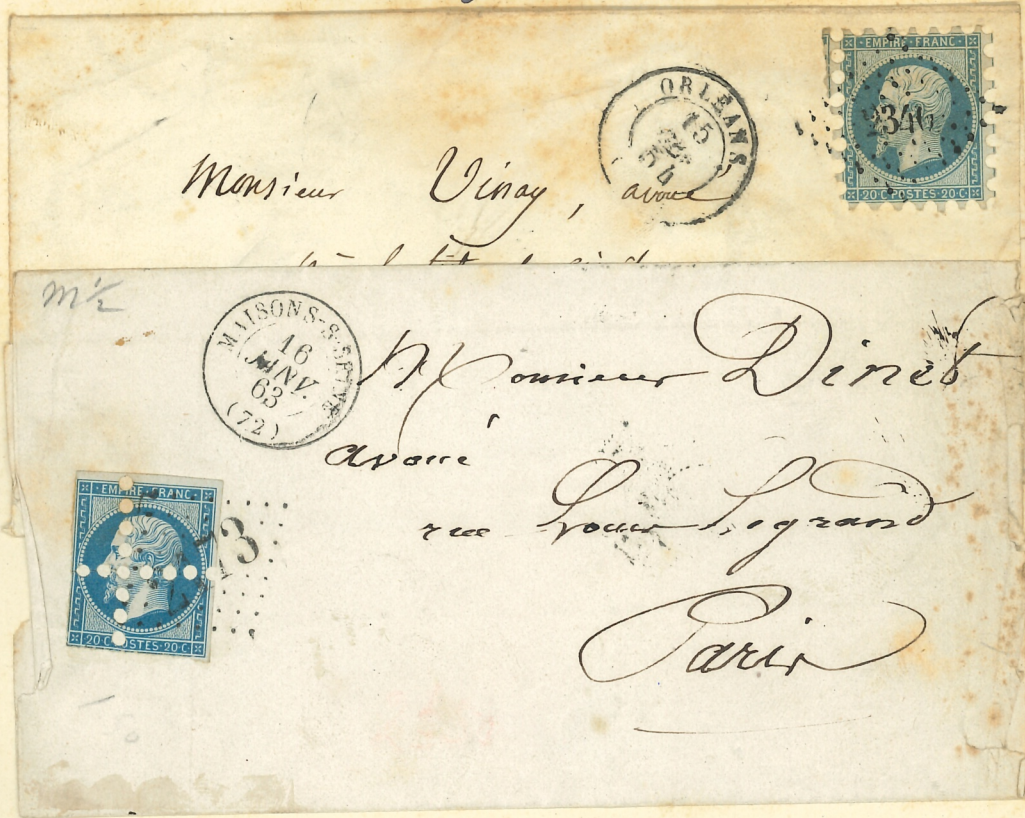 EMPIRE·FRANC
2346
20·C·POSTES·20·C·
ORLEANS
15
54
Monsieur Vinay, avoué
M 1/2
MAISONS-S-SEINE
16
JANV.
63
(72)
Monsieur Dinet
avoué
rue Louis Legrand
Paris
EMPIRE·FRANC
20·C·POSTES·20·C·